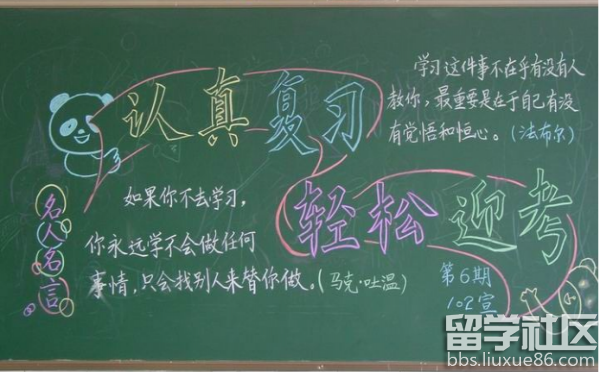 认真复习
学习这件事不在乎有没有人
教你，最重要是在于自己有没
有觉悟和恒心。（法布尔）
名人名言
如果你不去学习，
你永远学不会做任何
事情，只会找别人来替你做。（马克·吐温）
轻松迎考
第6期
102宣
留学社区
bbs.liuxue86.com